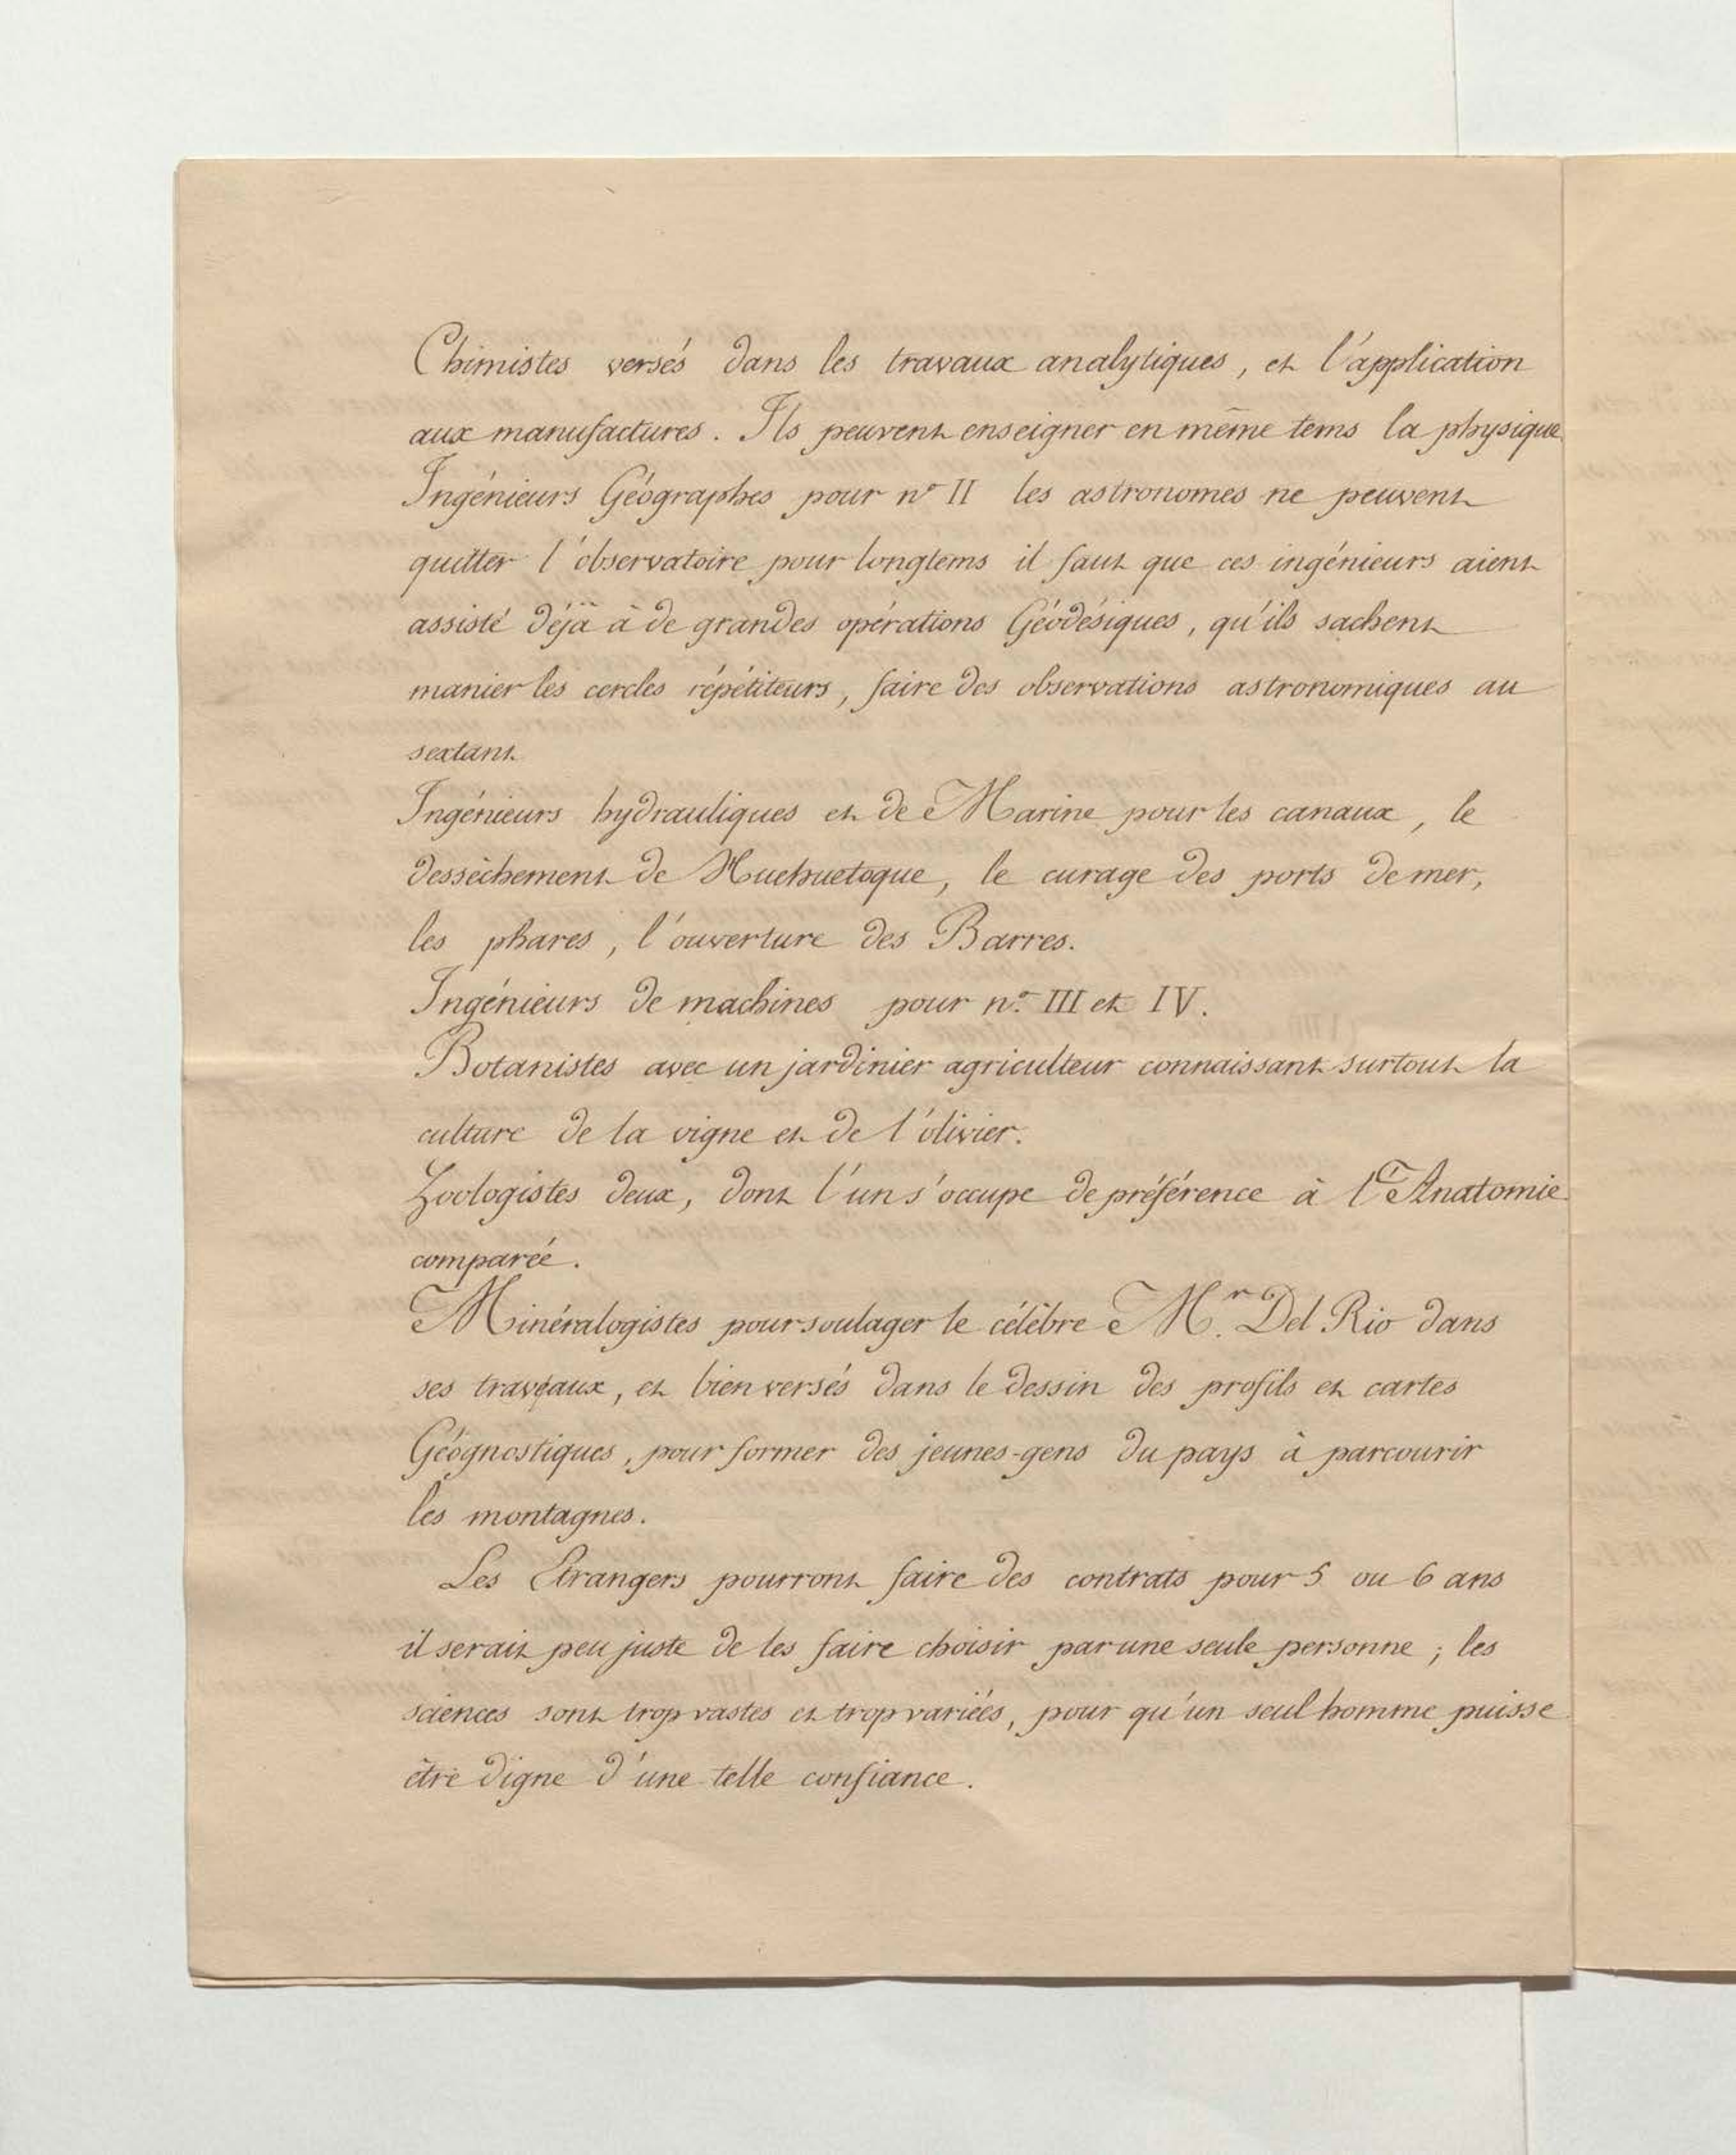 Chimistes versés dans les travaux analytiques, et l'application
aux manufactures. Ils peuvent enseigner en même tems la physique
Ingénieurs Géographes pour n° II les astronomes ne peuvent
quitter l'observatoire pour longtems il faut que ces ingénieurs aient
assisté déjà à de grandes opérations Géodésiques, qu'ils sachent
manier les cercles répétiteurs, faire des observations astronomiques au
sextant
Ingénieurs hydrauliques et de Marine pour les canaux, le
dessèchement de Huehuetoque, le curage des ports de mer,
les phares, l'ouverture des Barres.
Ingénieurs de machines pour n° III et IV.
Botanistes avec un jardinier agriculteur connaissant surtout la
culture de la vigne et de l'olivier.
Zoologistes deux, dont l'un s'occupe de préférence à l'Anatomie
comparée.
Minéralogistes pour soulager le célèbre Mr. Del Rio dans
ses travaux, et bien versés dans le dessin des profils et cartes
Géognostiques, pour former des jeunes-gens du pays à parcourir
les montagnes.
Les Etrangers pourront faire des contrats pour 5 ou 6 ans
il serait peu juste de les faire choisir par une seule personne ; les
sciences sont trop vastes et trop variées, pour qu'un seul homme puisse
être digne d'une telle confiance.